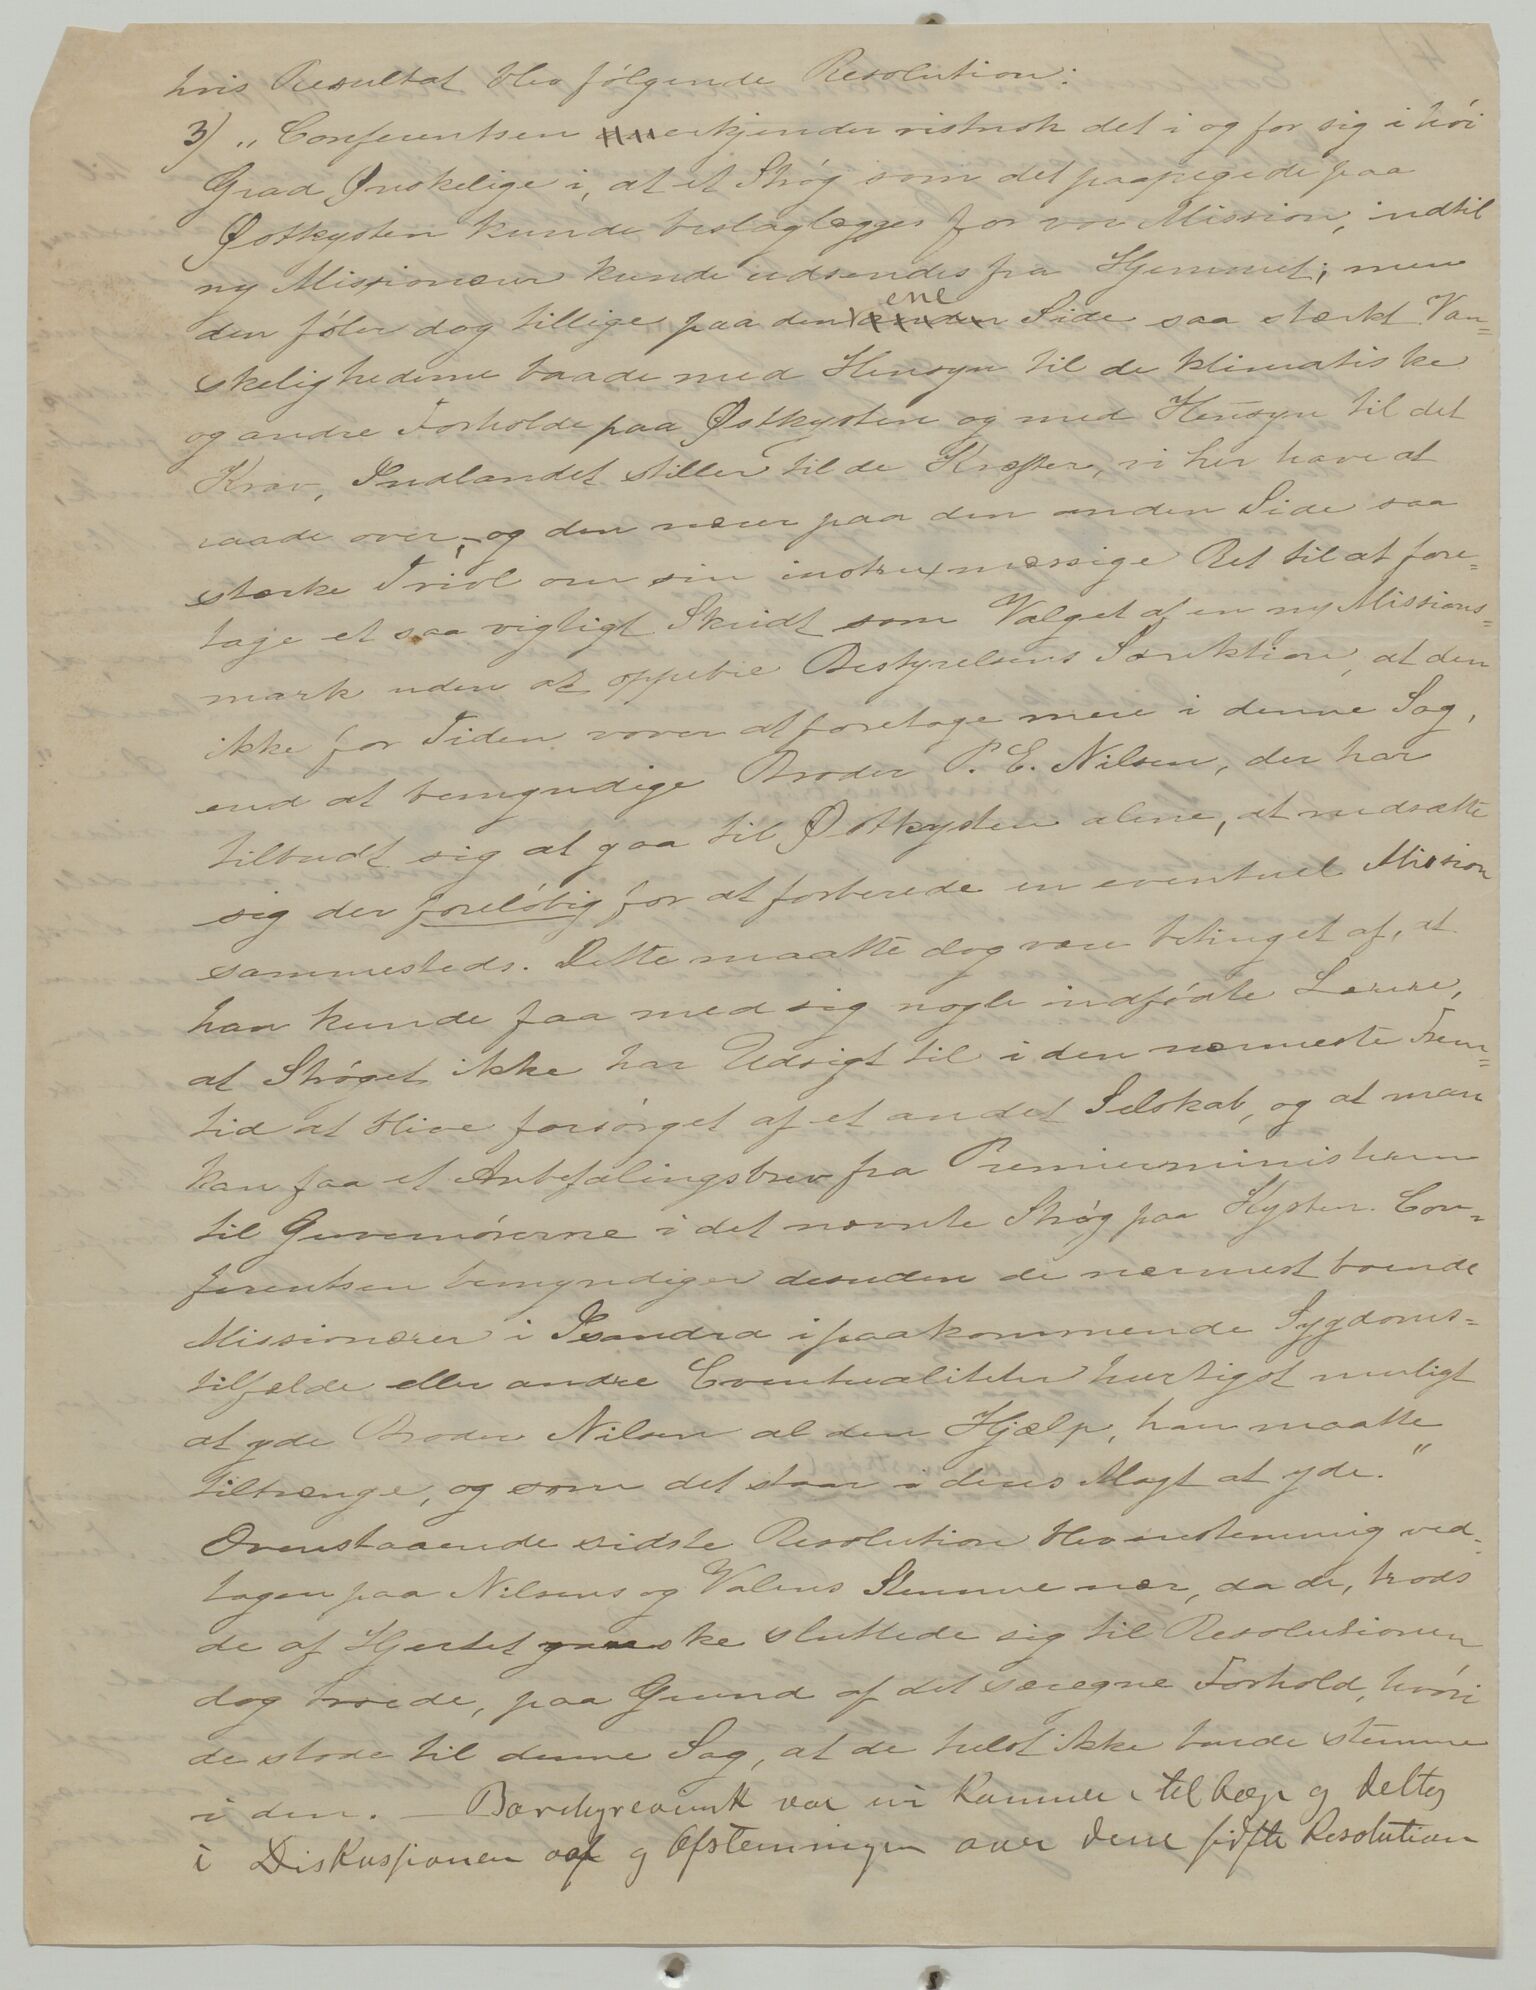 hvis Resultat blev følgende Resolution:
3) „Conferentsen erkjender vistnok det i og for sig i høi
Grad Ønskelige i, at et Strøg som det paapegede paa
Østkysten kunde beslaglægges for vor Mission, indtil
ny Missionærer kunde udsendes fra Hjemmet; men
den føler dog tillige paa den ene Side saa stærkt Van=
skelighederne baade med Hensyn til de klimatiske
og andre Forholde paa Østkysten og med Hensyn til det
Krav, Indlandet stiller til de Kræfter, vi her have at
raade over, og den nærer paa den anden Side saa
stærke Tvivl om sin instruxmæssige Ret til at fore=
tage et saa vigtigt Skridt som Valget af en ny Missions=
mark uden at oppebie Bestyrelsens Sanktion, at den
ikke for Tiden vover at foretage mere i denne Sag,
end at bemyndige Broder P. E. Nilsen, der har
tilbudt sig at gaa til Østkysten alene, at nedsætte
sig der foreløbig for at forberede en eventuel Mission
sammesteds. Dette maatte dog være betinget af, at
han kunde faa med sig nogle indfødte Lærere,
at Strøget ikke har Udsigt til i den nærmeste Frem=
tid at blive forsørget af et andet Selskab, og at man
kan faa et Anbefalingsbrev fra Premierministeren
til Guvernørerne i det nævnte Strøg paa Kysten. Con=
ferentsen bemyndiger desuden de nærmest boende
Missionærer i Isandra i paakommende Sygdoms=
tilfælde eller andre Eventualiteter hurtigst muligt
at yde Broder Nilsen al den Hjælp, han maatte
tiltrænge, og som det staar i deres Magt at yde.”
Ovenstaaende sidste Resolution blev enstemmig ved=
tagen paa Nilsens og Valens Stemme nær, da de, trods
de af Hjertet ganske sluttede sig til Resolutionen
dog troede, paa Grund af det særegne Forhold, hvori
de stode til denne Sag, at de helst ikke burde stemme
i den. — Borchgrevink var nu kommen tilbage og deltog
i Diskussionen og Afstemningen over denne sidste Resolution